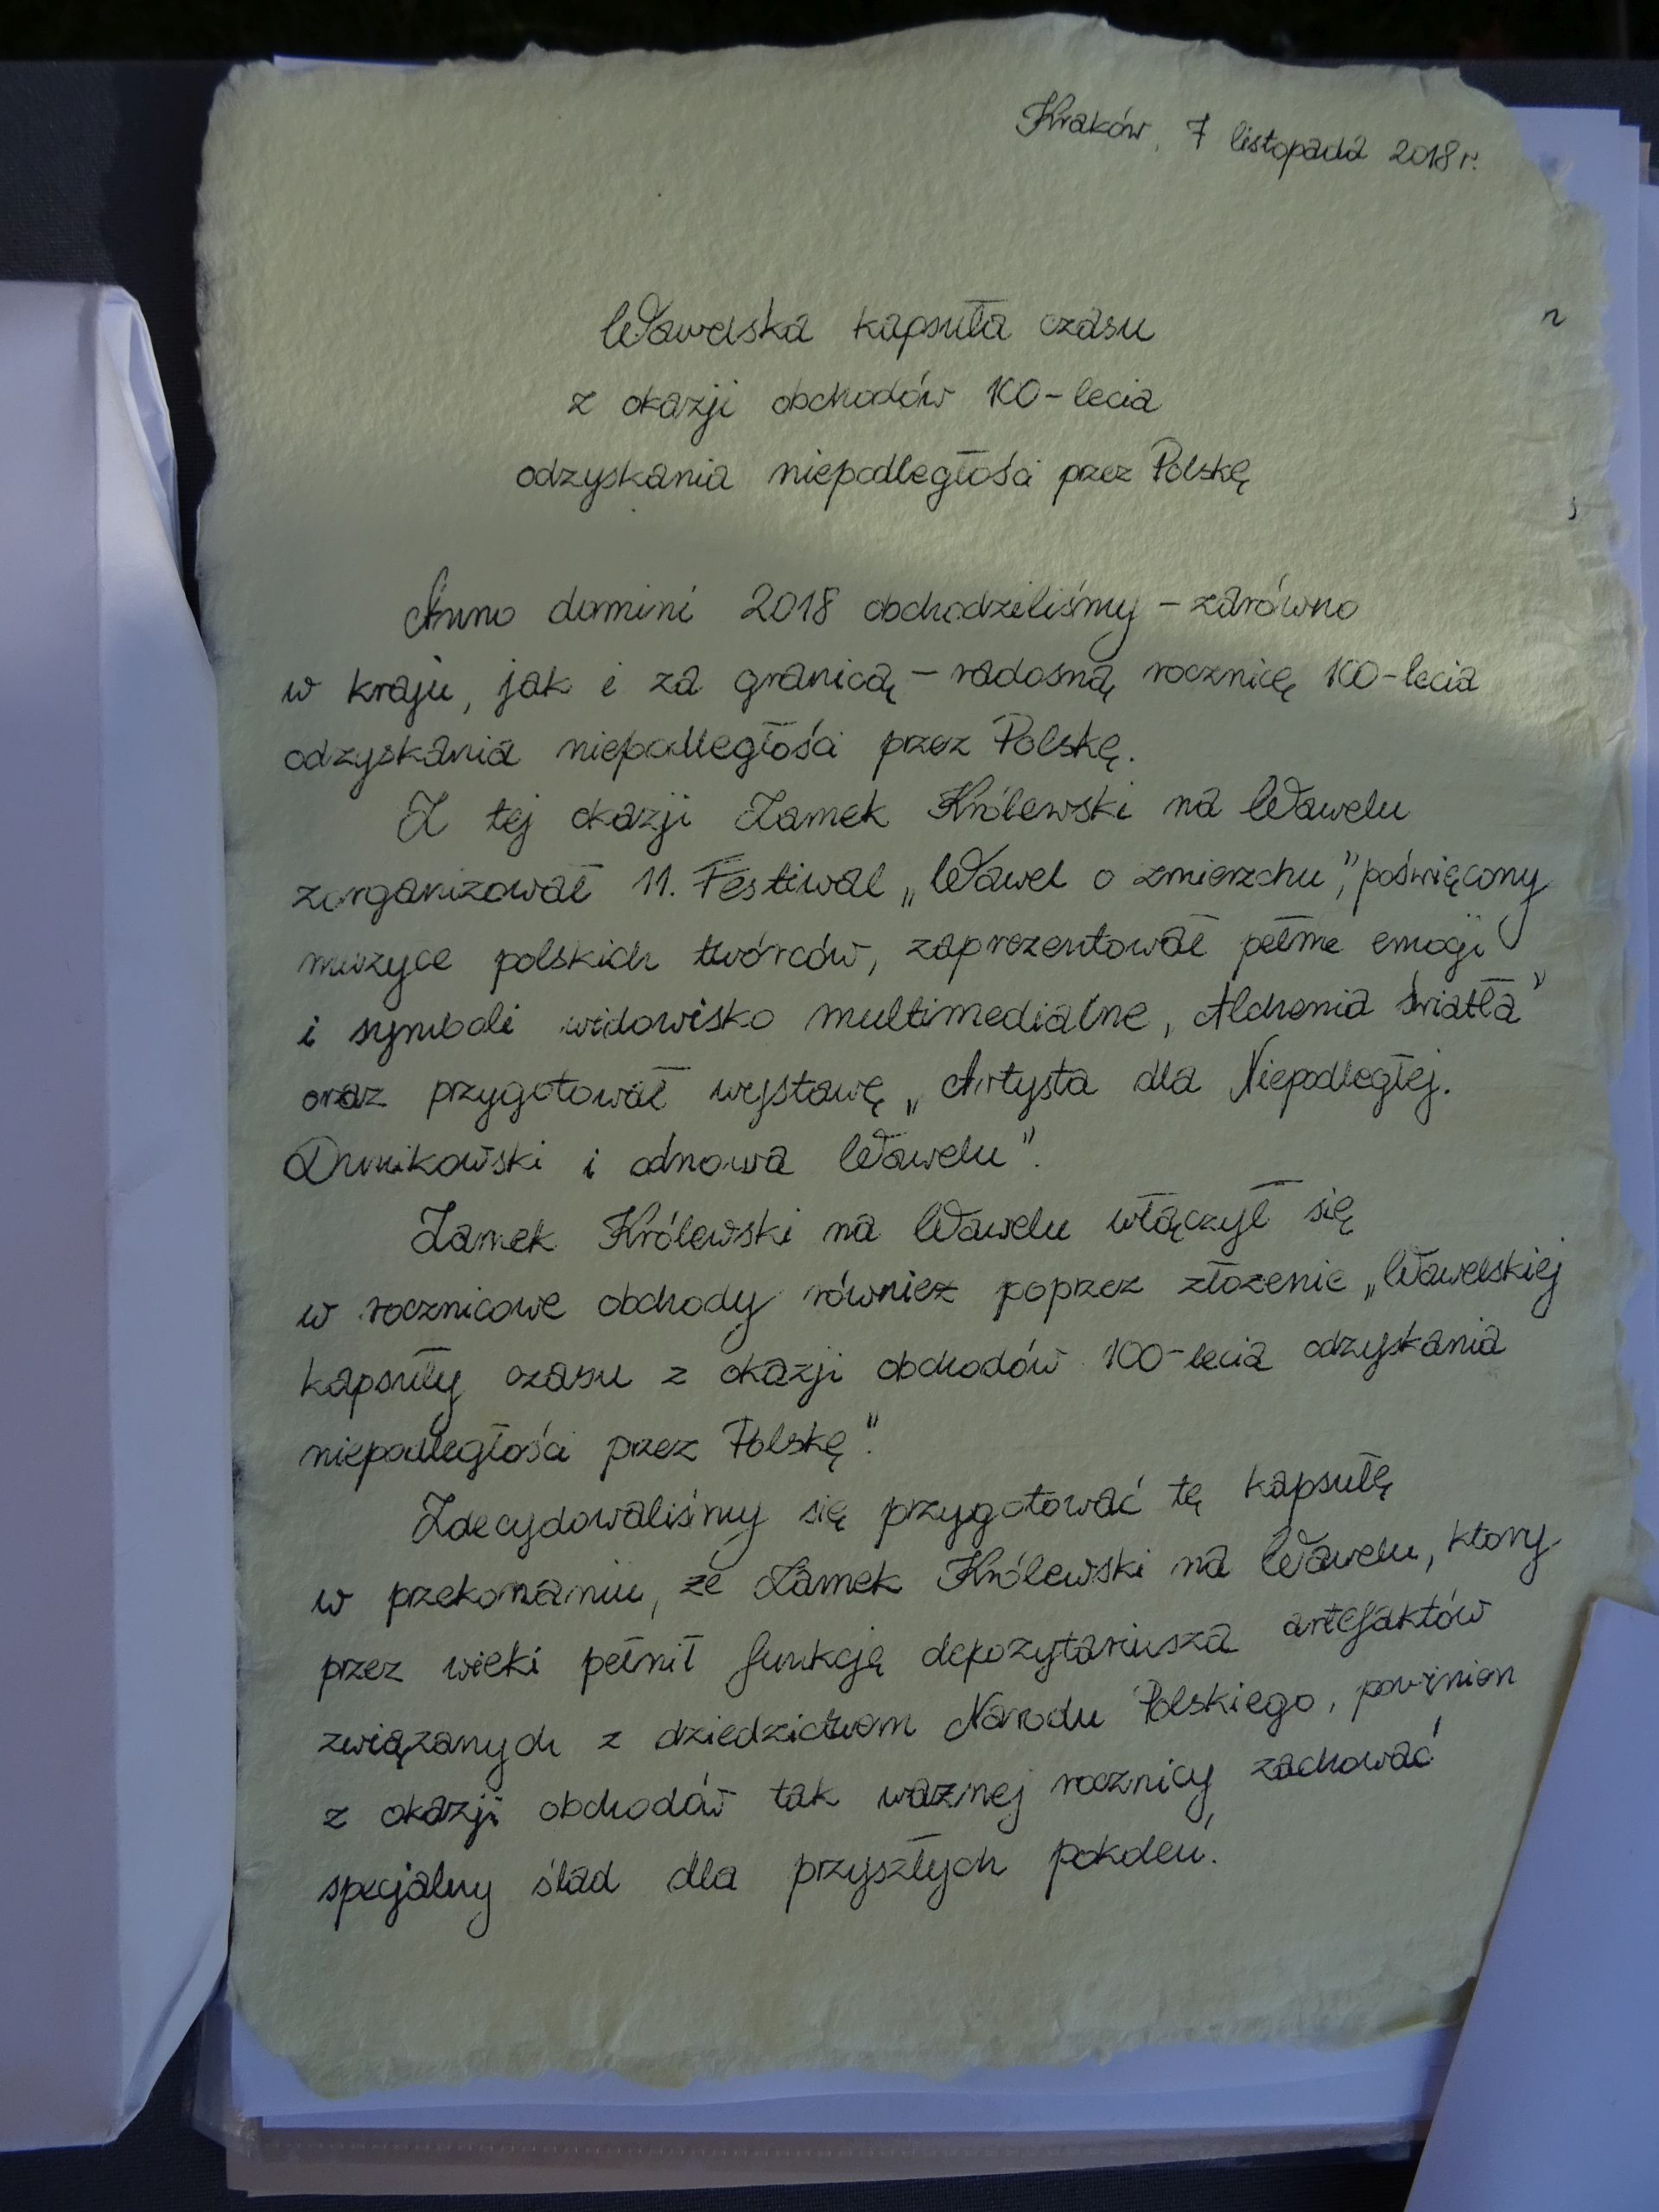 Kraków, 7 listopada 2018 r.
Wawelska kapsuła czasu
z okazji obchodów 100-lecia
odzyskania niepodległości przez Polskę
Anno domini 2018 obchodziliśmy – zarówno
w kraju, jak i za granicą – radosną rocznicę 100-lecia
odzyskania niepodległości przez Polskę.
Z tej okazji Zamek Królewski na Wawelu
zorganizował 11. Festiwal „Wawel o zmierzchu”, poświęcony
muzyce polskich twórców, zaprezentował pełne emocji
i symboli widowisko multimedialne „Alchemia światła”
oraz przygotował wystawę „Artysta dla Niepodległej.
Dunikowski i odnowa Wawelu”.
Zamek Królewski na Wawelu włączył się
w rocznicowe obchody również poprzez złożenie „Wawelskiej
kapsuły czasu z okazji obchodów 100-lecia odzyskania
niepodległości przez Polskę”.
Zdecydowaliśmy się przygotować tę kapsułę
w przekonaniu, że Zamek Królewski na Wawelu, który
przez wieki pełnił funkcję depozytariusza artefaktów
związanych z dziedzictwem Narodu Polskiego, powinien
z okazji obchodów tak ważnej rocznicy zachować
specjalny ślad dla przyszłych pokoleń.